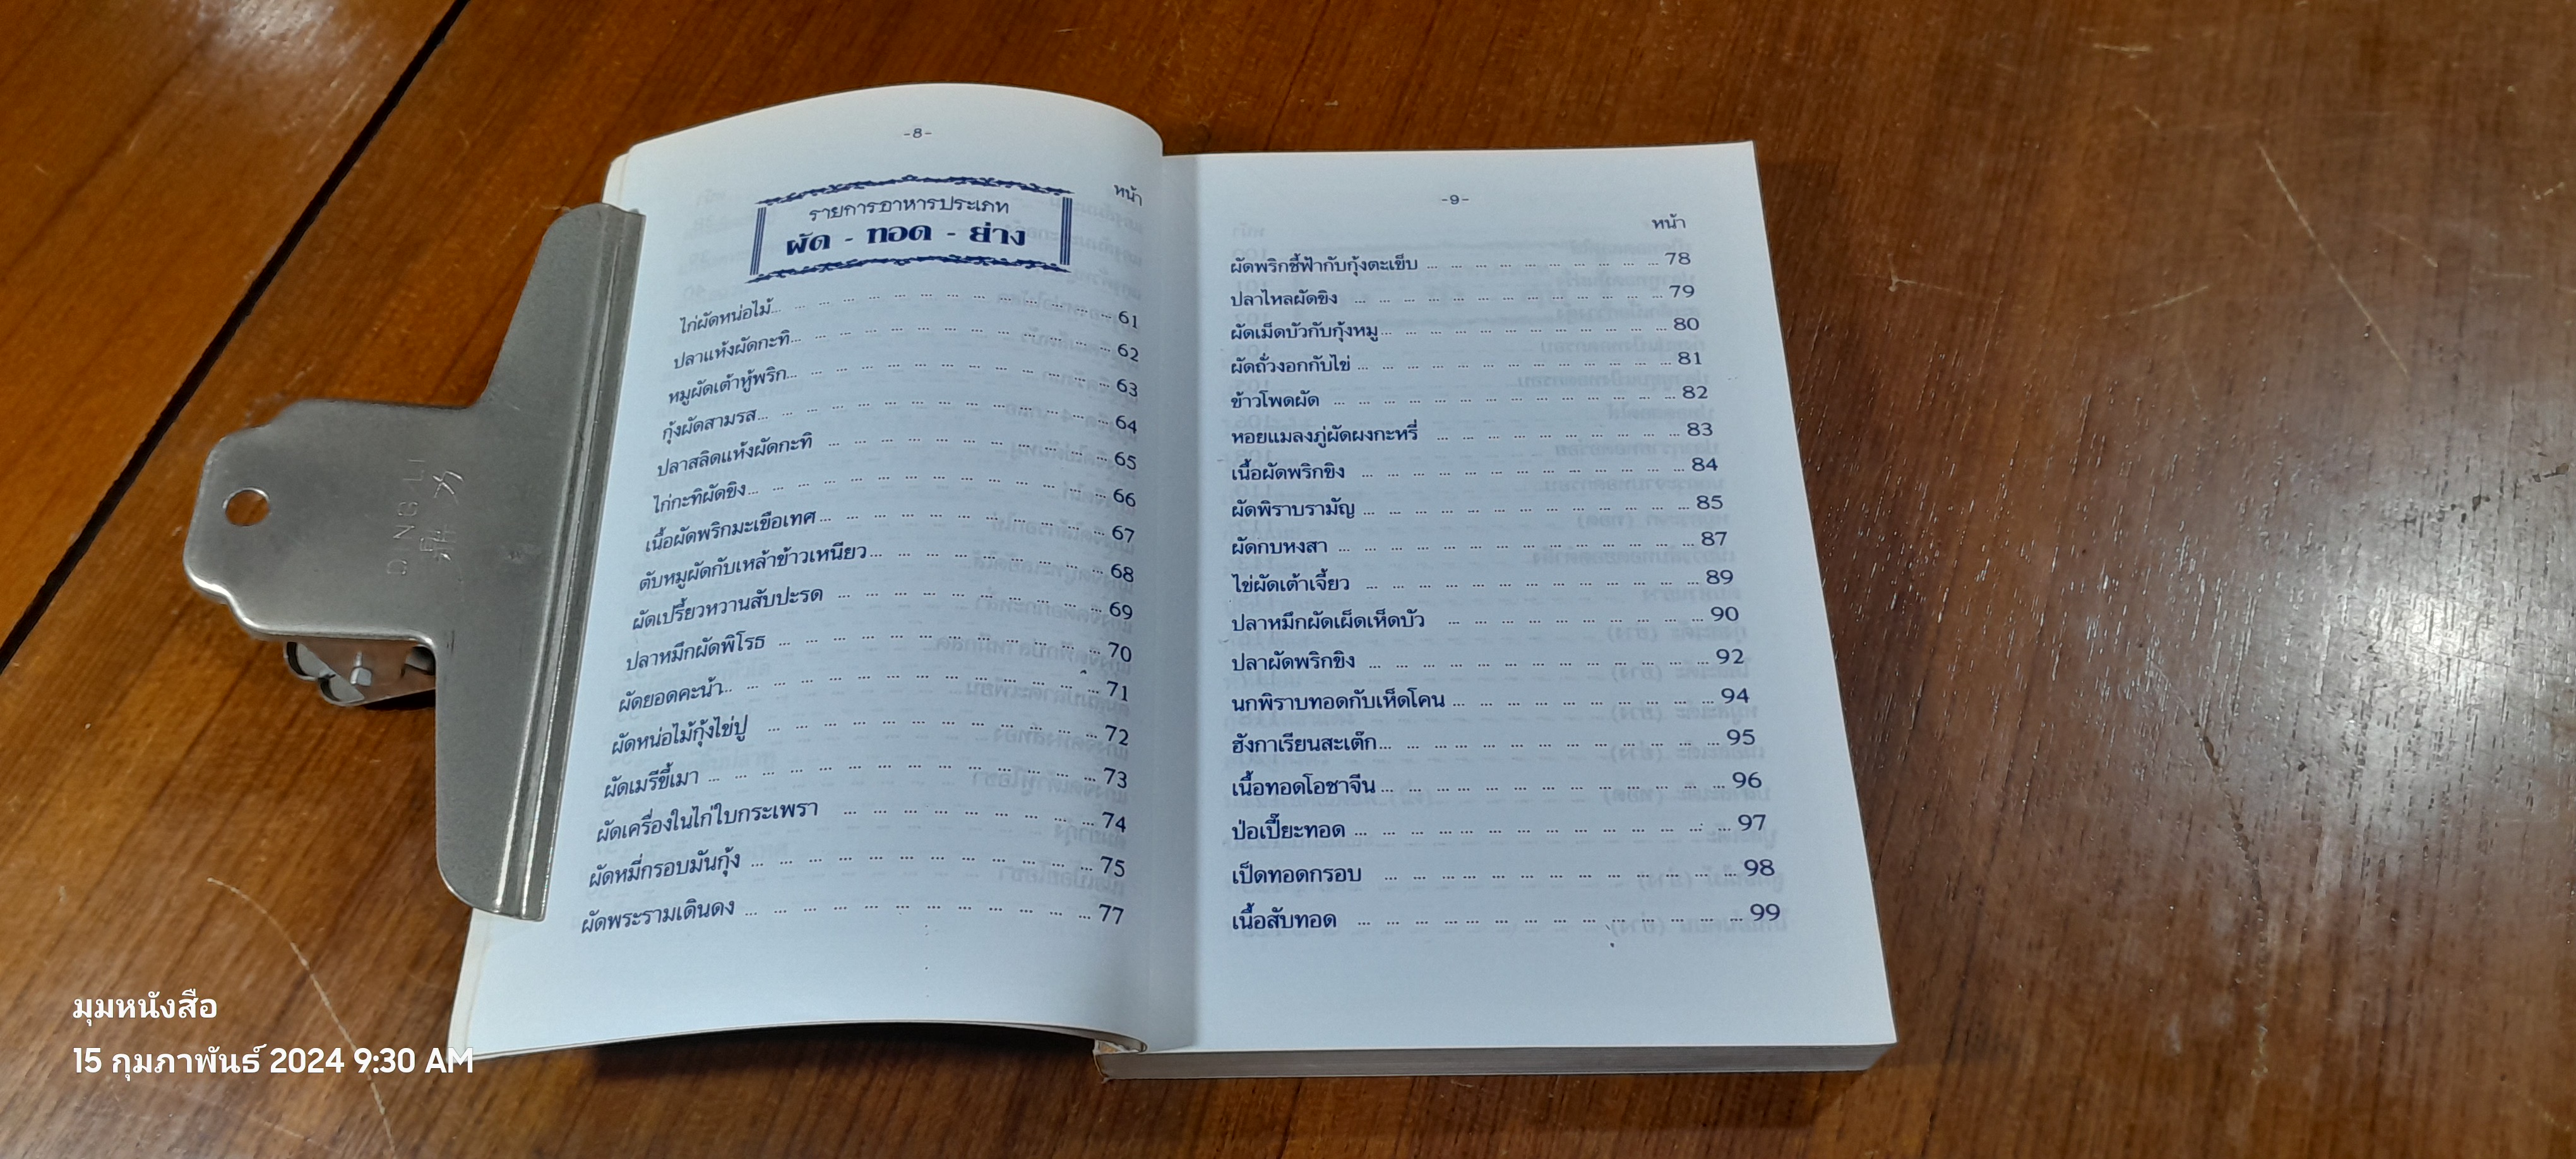 -8-
หน้า
รายการอาหารประเภท
ผัด - ทอด - ย่าง
ไก่ผัดหน่อไม้... ... ... ... ... ... ... ... ... ... ... ... ... 61
ปลาแห้งผัดกะทิ... ... ... ... ... ... ... ... ... ... ... ... 62
หมูผัดเต้าหู้พริก... ... ... ... ... ... ... ... ... ... ... ... 63
กุ้งผัดสามรส... ... ... ... ... ... ... ... ... ... ... ... ... 64
ปลาสลิดแห้งผัดกะทิ ... ... ... ... ... ... ... ... ... ... 65
ไก่กะทิผัดขิง... ... ... ... ... ... ... ... ... ... ... ... ... 66
เนื้อผัดพริกมะเขือเทศ... ... ... ... ... ... ... ... ... ... ... 67
ตับหมูผัดกับเหล้าข้าวเหนียว... ... ... ... ... ... ... ... ... 68
ผัดเปรี้ยวหวานสับปะรด ... ... ... ... ... ... ... ... ... ... 69
ปลาหมึกผัดพิโรธ ... ... ... ... ... ... ... ... ... ... ... ... 70
ผัดยอดคะน้า... ... ... ... ... ... ... ... ... ... ... ... ... ... 71
ผัดหน่อไม้กุ้งไข่ปู ... ... ... ... ... ... ... ... ... ... ... ... 72
ผัดเมรีขี้เมา ... ... ... ... ... ... ... ... ... ... ... ... ... ... 73
ผัดเครื่องในไก่ใบกระเพรา ... ... ... ... ... ... ... ... ... 74
ผัดหมี่กรอบมันกุ้ง ... ... ... ... ... ... ... ... ... ... ... ... 75
ผัดพระรามเดินดง ... ... ... ... ... ... ... ... ... ... ... ... 77
-9-
หน้า
ผัดพริกชี้ฟ้ากับกุ้งตะเข็บ ... ... ... ... ... ... ... ... ... ... 78
ปลาไหลผัดขิง ... ... ... ... ... ... ... ... ... ... ... ... ... 79
ผัดเม็ดบัวกับกุ้งหมู... ... ... ... ... ... ... ... ... ... ... ... 80
ผัดถั่วงอกกับไข่ ... ... ... ... ... ... ... ... ... ... ... ... ... 81
ข้าวโพดผัด ... ... ... ... ... ... ... ... ... ... ... ... ... ... 82
หอยแมลงภู่ผัดผงกะหรี่ ... ... ... ... ... ... ... ... ... ... 83
เนื้อผัดพริกขิง ... ... ... ... ... ... ... ... ... ... ... ... ... 84
ผัดพิราบรามัญ ... ... ... ... ... ... ... ... ... ... ... ... ... 85
ผัดกบหงสา ... ... ... ... ... ... ... ... ... ... ... ... ... ... 87
ไข่ผัดเต้าเจี้ยว ... ... ... ... ... ... ... ... ... ... ... ... ... 89
ปลาหมึกผัดเผ็ดเห็ดบัว ... ... ... ... ... ... ... ... ... ... 90
ปลาผัดพริกขิง ... ... ... ... ... ... ... ... ... ... ... ... ... 92
นกพิราบทอดกับเห็ดโคน ... ... ... ... ... ... ... ... ... ... 94
ฮังกาเรียนสะเต๊ก... ... ... ... ... ... ... ... ... ... ... ... ... 95
เนื้อทอดโอชาจีน ... ... ... ... ... ... ... ... ... ... ... ... ... 96
ป่อเปี๊ยะทอด ... ... ... ... ... ... ... ... ... ... ... ... ... ... 97
เป็ดทอดกรอบ ... ... ... ... ... ... ... ... ... ... ... ... ... 98
เนื้อสับทอด ... ... ... ... ... ... ... ... ... ... ... ... ... ... 99
มุมหนังสือ
15 กุมภาพันธ์ 2024 9:30 AM